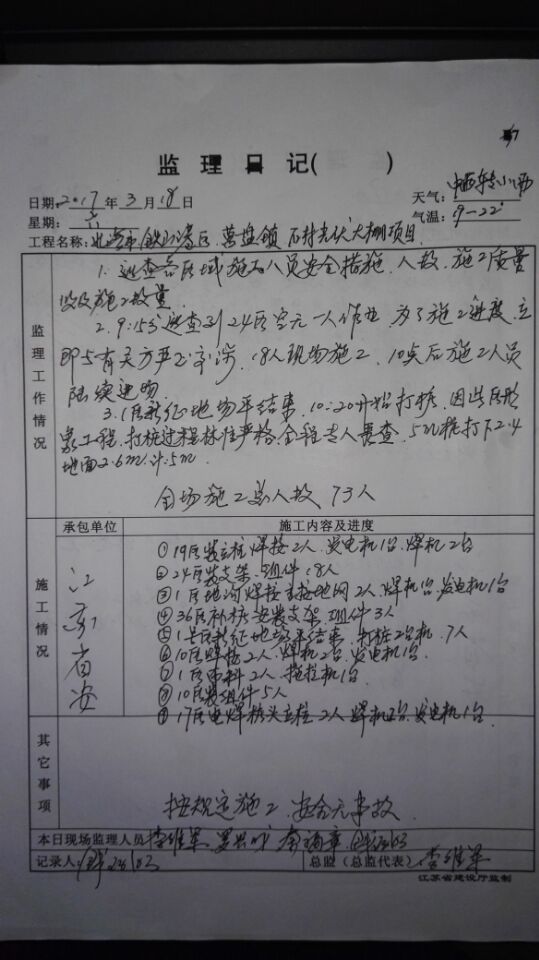 监理日记( )
日期:2017年3月18日
天气:
星期:六
气温:9-22°
工程名称:北海市铁山港区营盘镇石村光伏大棚项目
监理工作情况
1.巡查各区域施工人员安全措施、人数、施工质量
及施工数量
2.9:15分巡查到24区 无一人作业 为了施工进度、立
即与有关方严正 18人现场施工 10点后施工人员
陆续进场
3.1区新征地场平结束 10:20开始打桩 因此区形
象工程、打桩过程标准严格、全程专人费查 5m桩打下2.4
地面2.6m 计:5m
全场施工总人数 73人
承包单位
施工内容及进度
施工情况
江苏省安
①19区装立柱焊接2人、发电机1台、焊机2台
②24区装支架、组件18人
③1区地沟焊接 接地网2人、焊机1台、发电机1台
④36区补桩安装支架、组件3人
⑤1号区新征地场平结束、打桩2台机、7人
⑥10区焊接2人、焊机2台、发电机1台
⑦1区布料2人、拖拉机1台
⑧10区装组件5人
⑨17区电焊桩头立柱2人 焊机2台、发电机1台
其它事项
按规定施工 安全无事故
本日现场监理人员 李维军
记录人:
总监(总监代表):李维军
江苏省建设厅监制